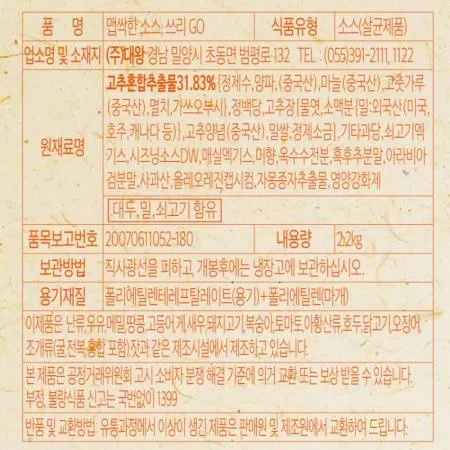 품 명 맵싹한 소스, 쓰리 GO 식품유형 소스(살균제품)
업소명 및 소재지 (주)대왕 경남 밀양시 초동면 범평로 132 TEL : (055)391-2111, 1122
원재료명 고추혼합추출물31.83% {정제수, 양파, (중국산), 마늘(중국산), 고춧가루
(중국산), 멸치, 가쓰오부시}, 정백당, 고추장{물엿, 소맥분(밀:외국산(미국,
호주, 캐나다 등)}, 고추양념(중국산), 밀쌀, 정제소금}, 기타과당, 쇠고기엑
기스, 시즈닝소스DW, 매실엑기스, 미향, 옥수수전분, 흑후추분말, 아라비아
검분말, 사과산, 올레오레진캡시컴, 자몽종자추출물, 영양강화제
대두, 밀, 쇠고기 함유
품목보고번호 20070611052-180 내용량 2.2kg
보관방법 직사광선을 피하고, 개봉후에는 냉장고에 보관하십시오.
용기재질 폴리에틸렌테레프탈레이트(용기)+폴리에틸렌(마개)
이제품은 난류,우유,메밀,땅콩,고등어,게,새우,돼지고기,복숭아,토마토,아황산류,호두,닭고기,오징어,
조개류(굴,전복,홍합 포함),잣과 같은 제조시설에서 제조하고 있습니다.
본 제품은 공정거래위원회 고시 소비자 분쟁 해결 기준에 의거 교환 또는 보상 받을 수 있습니다.
부정, 불량식품 신고는 국번없이 1399
반품 및 교환방법: 유통과정에서 이상이 생긴 제품은 판매원 및 제조원에서 교환하여 드립니다.